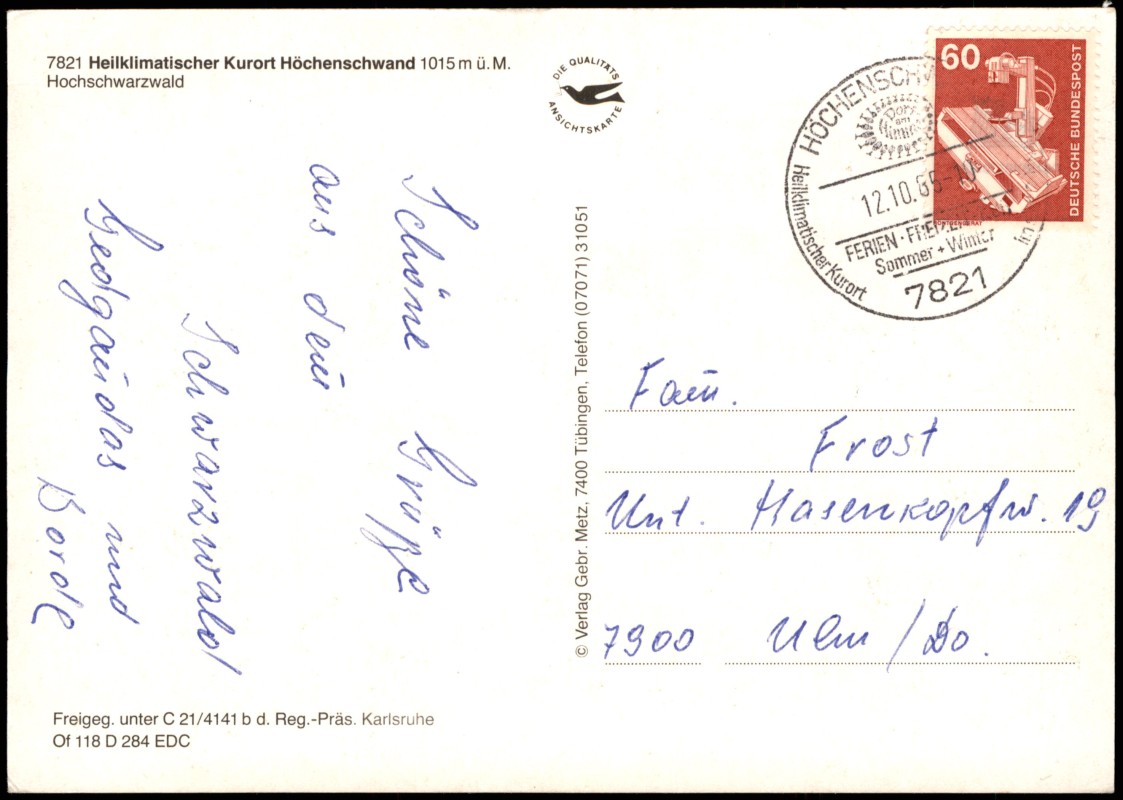 7821 Heilklimatischer Kurort Höchenschwand 1015 m ü. M.
Hochschwarzwald
DIE QUALITÄTS
ANSICHTSKARTE
60
DEUTSCHE BUNDESPOST
HÖCHENSCHW
Dorf am Himmel
12.10.8
FERIEN·FREIZEIT
Sommer + Winter
Heilklimatischer Kurort
7821
Schöne Grüße
aus dem
Schwarzwald
und
© Verlag Gebr. Metz, 7400 Tübingen, Telefon (07071) 31051
Fam.
Frost
Unt. Hasenkopfw. 19
7900 Ulm/Do.
Freigeg. unter C 21/4141 b d. Reg.-Präs. Karlsruhe
Of 118 D 284 EDC